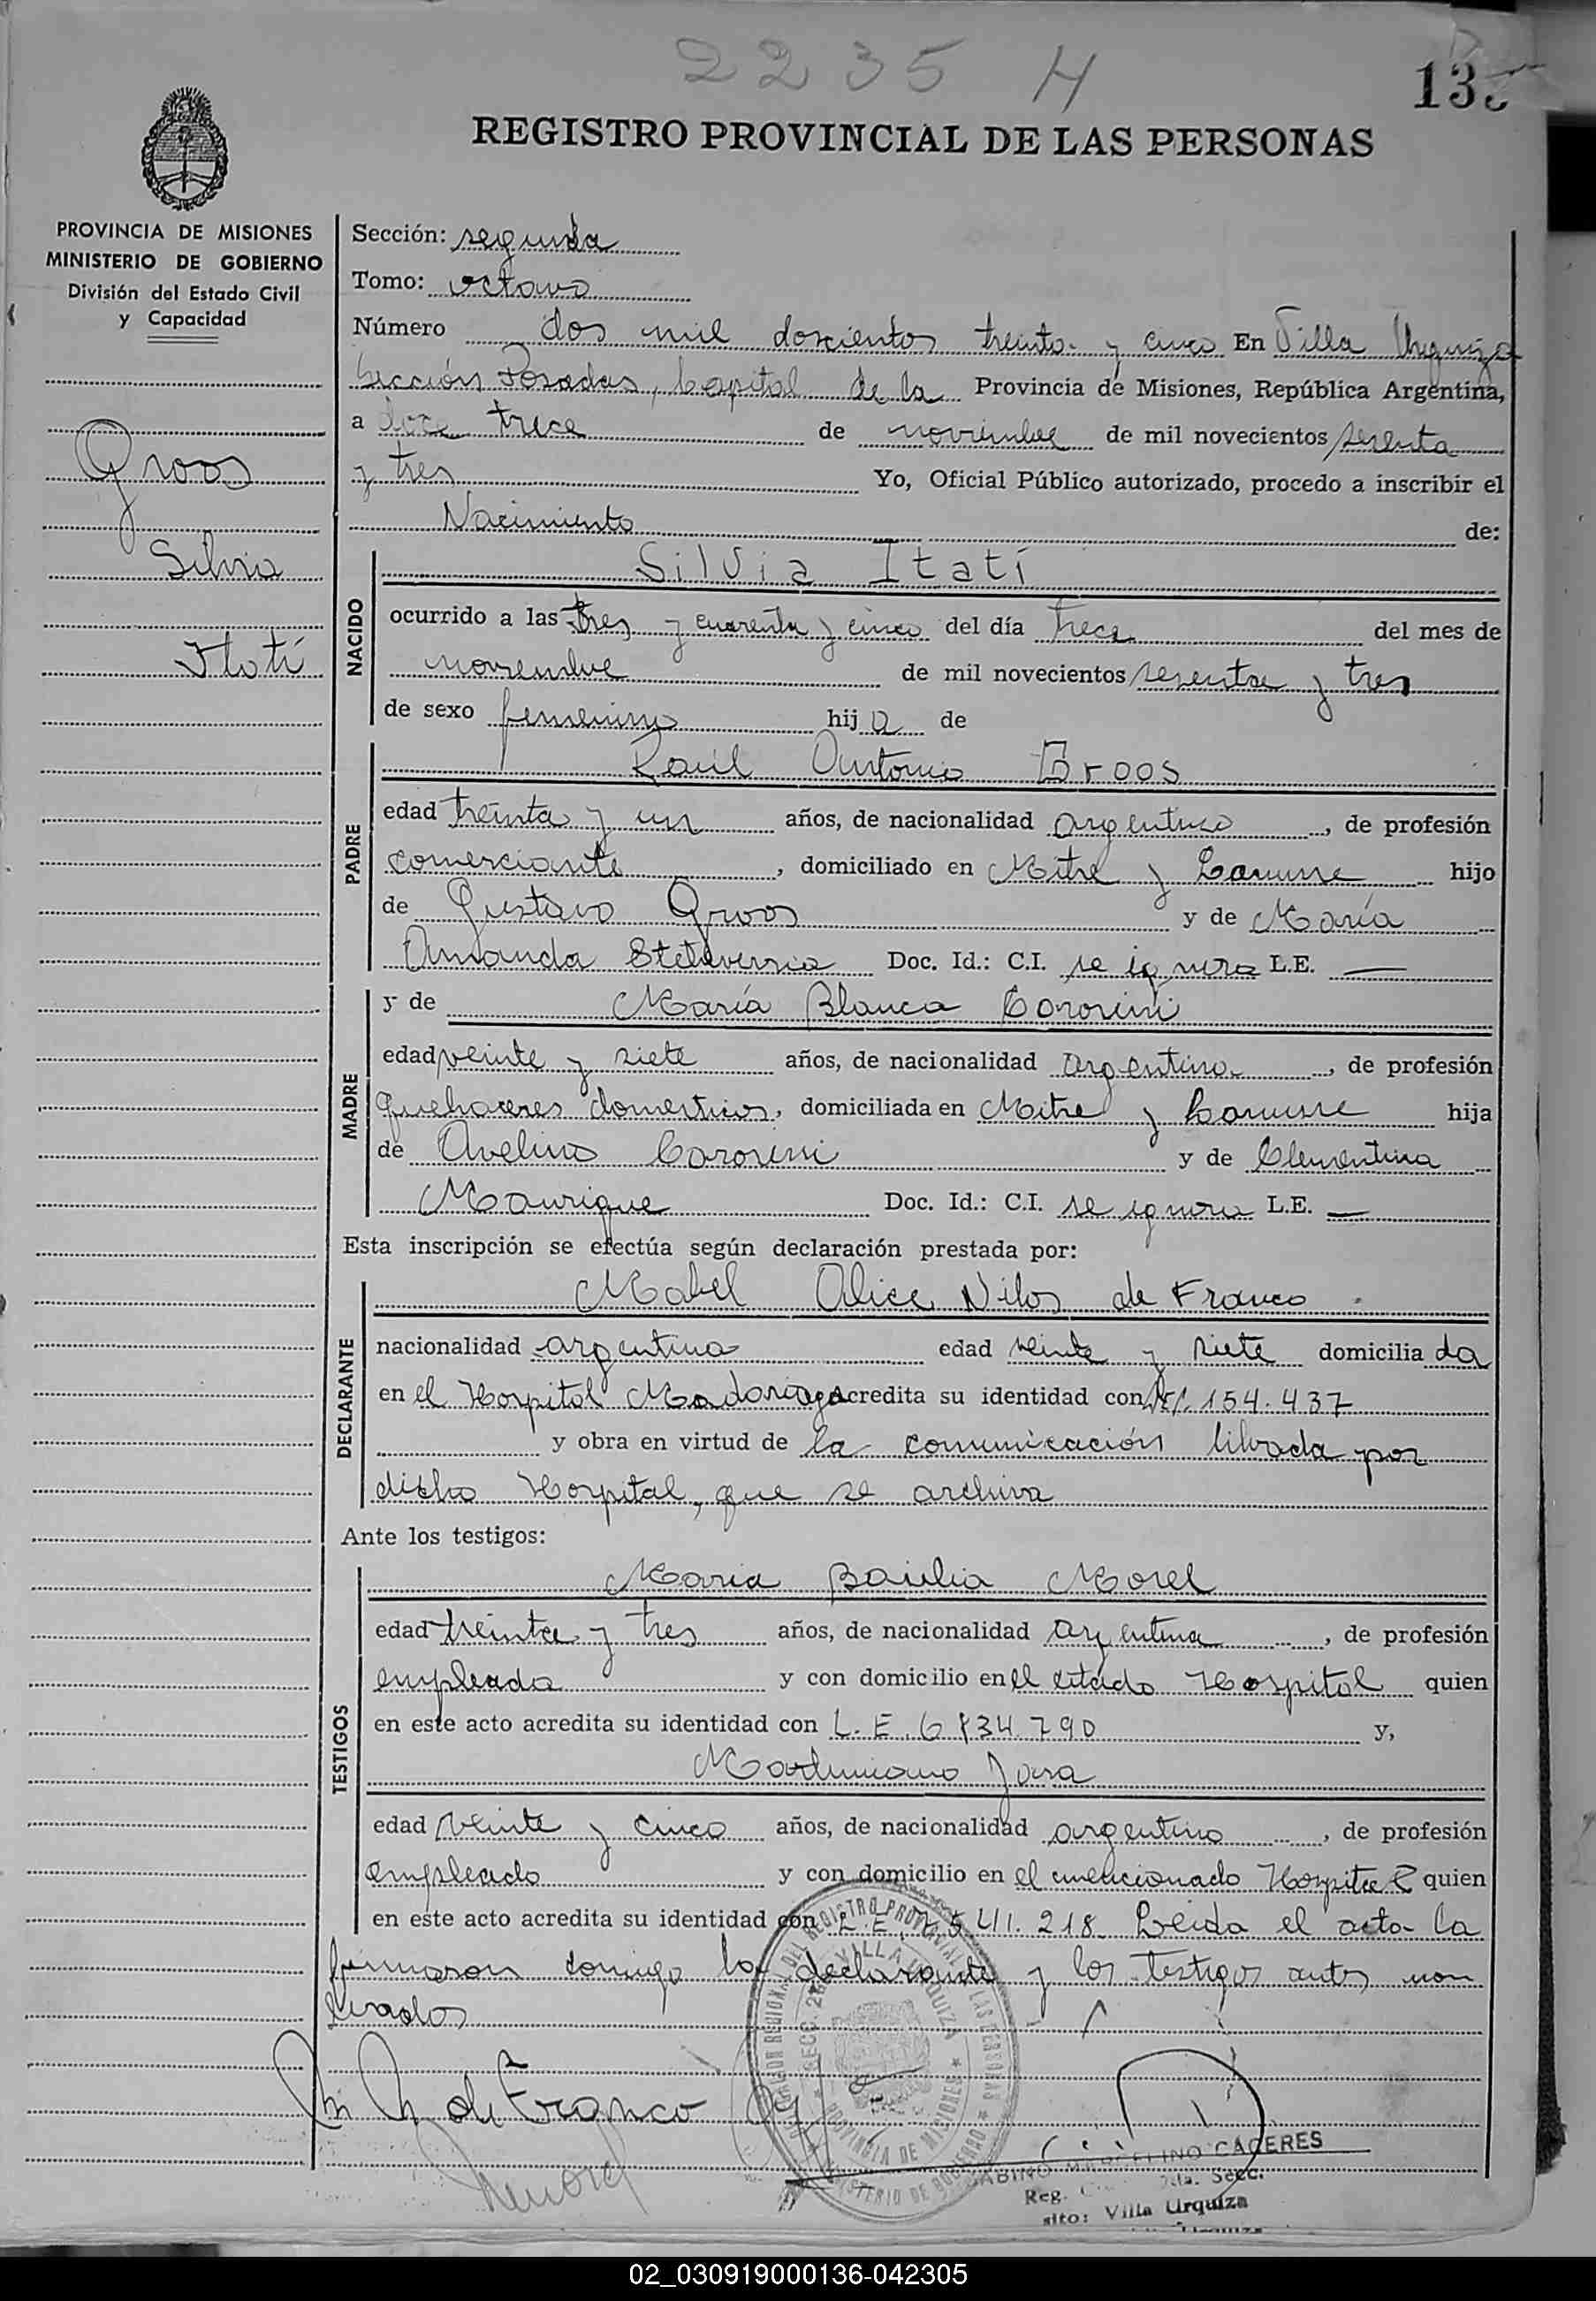 2235 H
135
REGISTRO PROVINCIAL DE LAS PERSONAS
PROVINCIA DE MISIONES
MINISTERIO DE GOBIERNO
División del Estado Civil
y Capacidad
Groos
Silvia
Itatí
Sección: segunda
Tomo: octavo
Número dos mil doscientos treinta y cinco En Villa Urquiza
Sección Posadas, Capital de la Provincia de Misiones, República Argentina,
a trece de noviembre de mil novecientos sesenta
y tres Yo, Oficial Público autorizado, procedo a inscribir el
Nacimiento de:
NACIDO
Silvia Itatí
ocurrido a las tres y cuarenta y cinco del día trece del mes de
noviembre de mil novecientos sesenta y tres
de sexo femenino hija de
PADRE
Raúl Antonio Groos
edad treinta y un años, de nacionalidad argentino, de profesión
comerciante, domiciliado en Mitre y hijo
de Gustavo Groos y de María
Amanda Doc. Id.: C.I. se ignora L.E. —
MADRE
y de María Blanca
edad veinte y siete años, de nacionalidad argentina, de profesión
quehaceres domésticos, domiciliada en Mitre y hija
de Avelino y de Clementina
Manrique Doc. Id.: C.I. se ignora L.E. —
Esta inscripción se efectúa según declaración prestada por:
DECLARANTE
Mabel Alice Nilos de Franco
nacionalidad argentina edad veinte y siete domiciliada
en el Hospital Madariaga acredita su identidad con 154.437
y obra en virtud de la comunicación librada por
dicho Hospital, que se archiva
Ante los testigos:
TESTIGOS
María Morel
edad treinta y tres años, de nacionalidad argentina, de profesión
empleada y con domicilio en el citado Hospital quien
en este acto acredita su identidad con L.E. 790 y,
Martiniano Jara
edad veinte y cinco años, de nacionalidad argentino, de profesión
empleado y con domicilio en el mencionado Hospital quien
en este acto acredita su identidad con L.E. 218. Leída el acta la
firmaron conmigo la declarante y los testigos antes nom
brados
M N de Franco
CACERES
Reg. Secc.
sito: Villa Urquiza
02_030919000136-042305